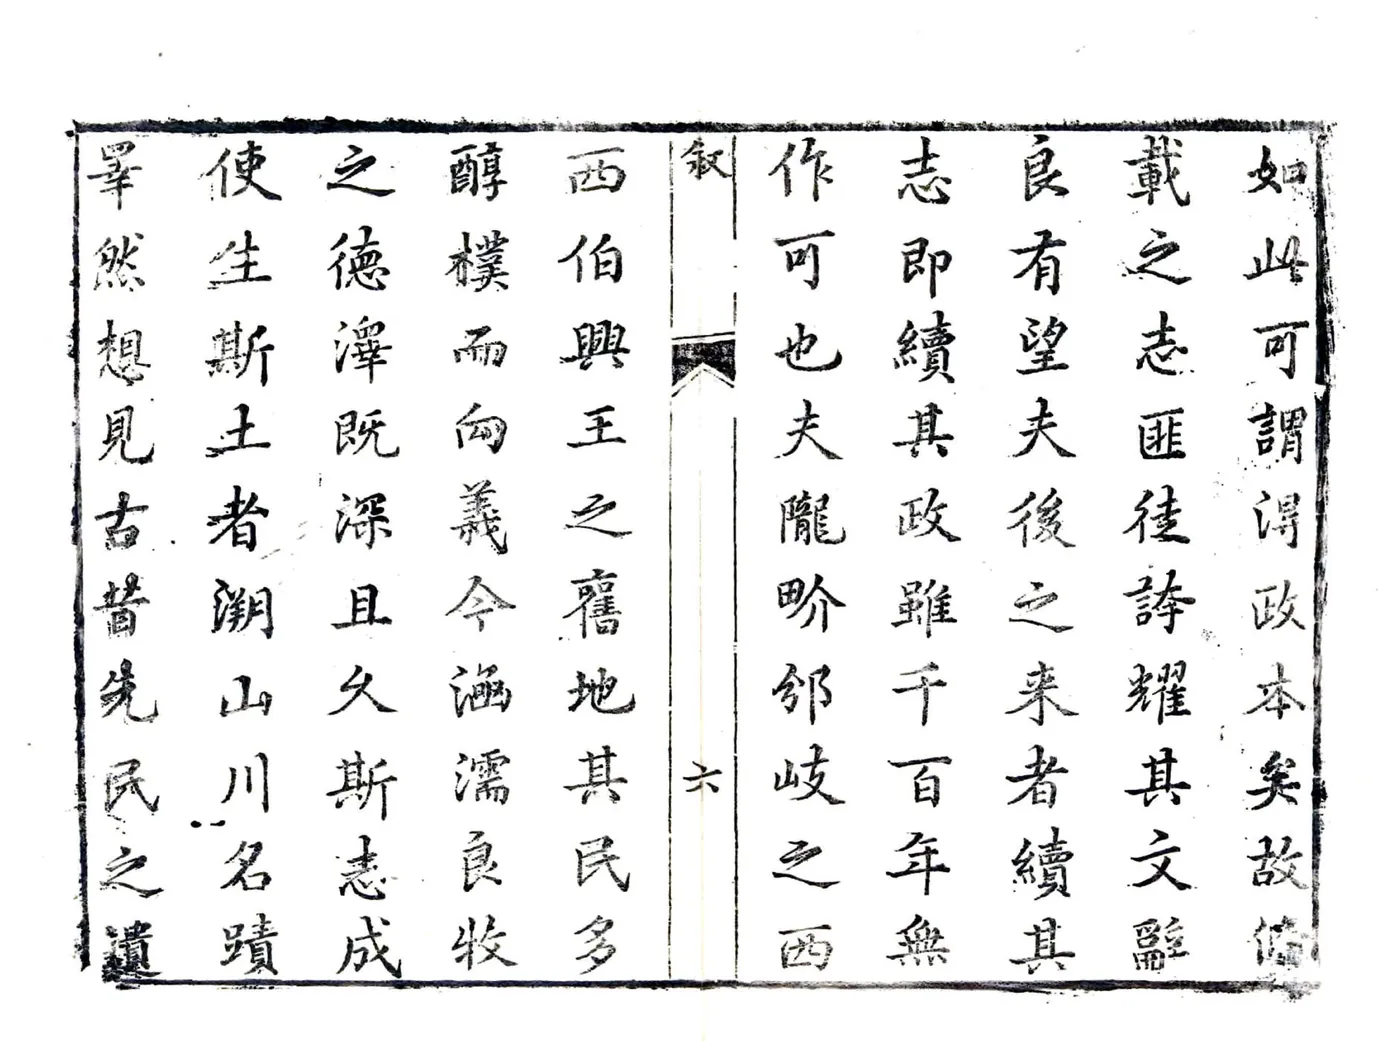 如此可謂得政本矣故備
載之志匪徒誇耀其文辭
良有望夫後之来者續其
志即續其政雖千百年無
作可也夫隴畍邻岐之西
叙
六
西伯興王之舊地其民多
醇樸而向義今涵濡良牧
之德澤既深且久斯志成
使生斯土者溯山川名蹟
睪然想見古昔先民之遺